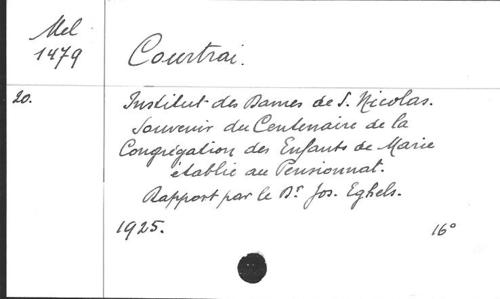 Mel
1479
Courtrai.
20.
Institut des Dames de S. Nicolas.
Souvenir du Centenaire de la
Congrégation des Enfants de Marie
établie au Pensionnat.
Rapport par le Dr. Jos. Eghels.
1925.
16°